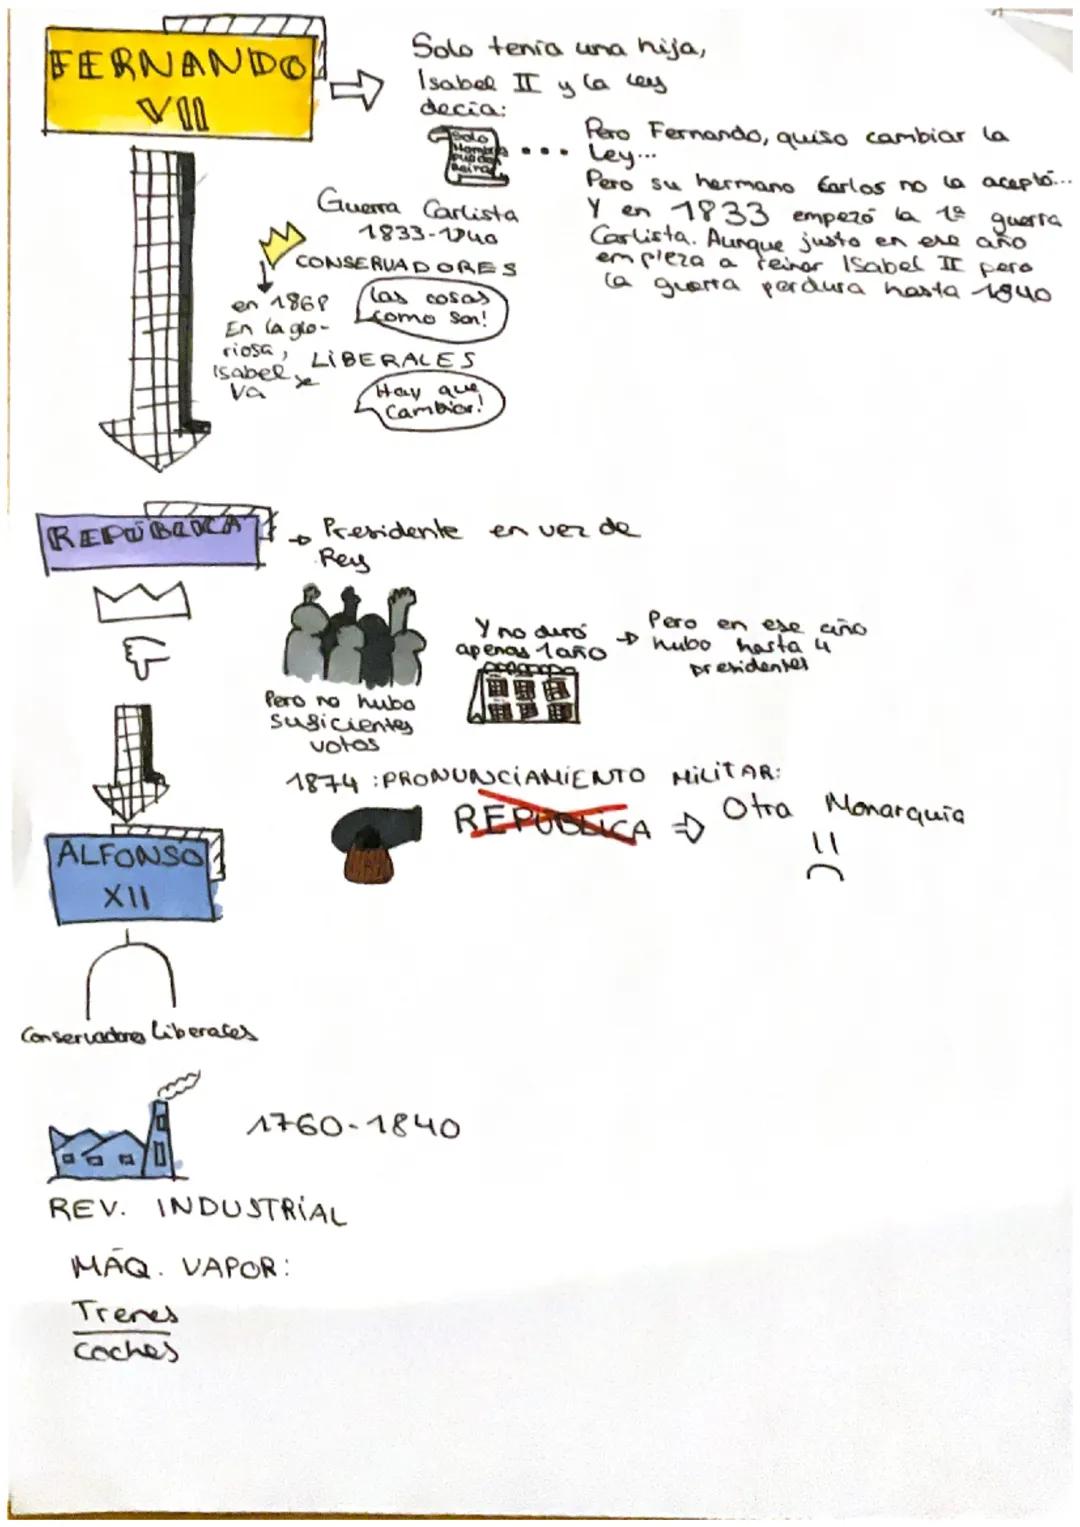 FERNANDO
VII
Solo tenía una hija,
Isabel II y la ley
decía:
Solo
Hombres
pueden
Reinar
...
Pero Fernando, quiso cambiar la
Ley...
Pero su hermano Carlos no la aceptó...
Y en 1833 empezó la 1ª guerra
Carlista. Aunque justo en ese año
empieza a reinar Isabel II pero
la guerra perdura hasta 1840
Guerra Carlista
1833-1840
CONSERVADORES
Las cosas
como son!
en 1868
En la glo-
riosa,
Isabel se
va
LIBERALES
Hay que
cambiar!
REPÚBLICA
Presidente en vez de
Rey
Pero no hubo
suficientes
votos
Y no duró
apenas 1 año
Pero en ese año
hubo hasta 4
presidentes
1874 : PRONUNCIAMIENTO MILITAR:
REPÚBLICA
Otra Monarquía
ALFONSO
XII
Conservadores Liberales
1760-1840
REV. INDUSTRIAL
MÁQ. VAPOR:
Trenes
Coches